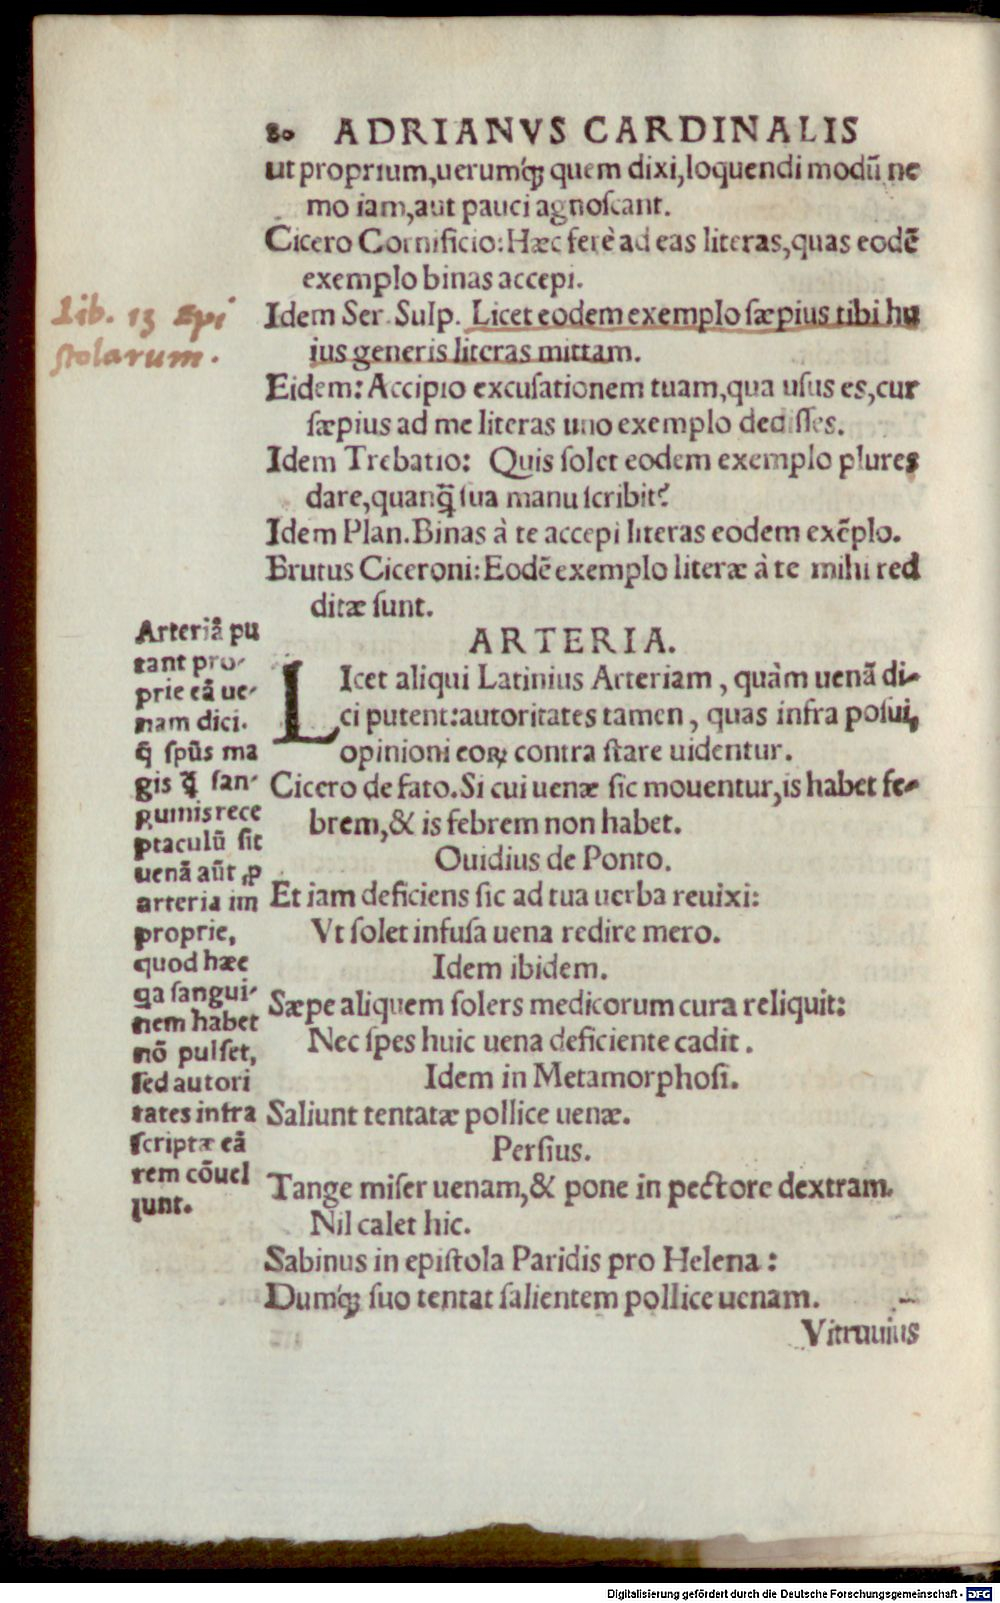 80 ADRIANVS CARDINALIS
ut proprium, uerumq́ꝫ quem dixi, loquendi modũ ne
mo iam, aut pauci agnoſcant.
Cicero Cornificio: Hæc ferè ad eas literas, quas eodẽ
exemplo binas accepi.
Lib. 13 Epi
ſtolarum.
Idem Ser. Sulp. Licet eodem exemplo ſæpius tibi hu
ius generis literas mittam.
Eidem: Accipio excuſationem tuam, qua uſus es, cur
ſæpius ad me literas uno exemplo dediſſes.
Idem Trebatio: Quis ſolet eodem exemplo plures
dare, quanq̃ ſua manu ſcribit?
Idem Plan. Binas à te accepi literas eodem exẽplo.
Brutus Ciceroni: Eodẽ exemplo literæ à te mihi red
ditæ ſunt.
ARTERIA.
Arteriã pu
tant pro-
prie eã ue-
nam dici.
q̃ ſpũs ma
gis q̃ ſan-
guinis rece
ptaculũ ſit
uenã aũt ꝓ
arteria im
proprie,
quod hæc
q̃a ſangui-
nem habet
nõ pulſet,
ſed autori
tates infra
ſcriptæ eã
rem cõuel
lunt.
LIcet aliqui Latinius Arteriam, quàm uenã di-
ci putent: autoritates tamen, quas infra poſui,
opinioni eoꝝ contra ſtare uidentur.
Cicero de fato. Si cui uenæ ſic mouentur, is habet fe-
brem, & is febrem non habet.
Ouidius de Ponto.
Et iam deficiens ſic ad tua uerba reuixi:
Vt ſolet infuſa uena redire mero.
Idem ibidem.
Sæpe aliquem ſolers medicorum cura reliquit:
Nec ſpes huic uena deficiente cadit.
Idem in Metamorphoſi.
Saliunt tentatæ pollice uenæ.
Perſius.
Tange miſer uenam, & pone in pectore dextram.
Nil calet hic.
Sabinus in epiſtola Paridis pro Helena:
Dumq́ꝫ ſuo tentat ſalientem pollice uenam.
Vitruuius
Digitalisierung gefördert durch die Deutsche Forschungsgemeinschaft - DFG